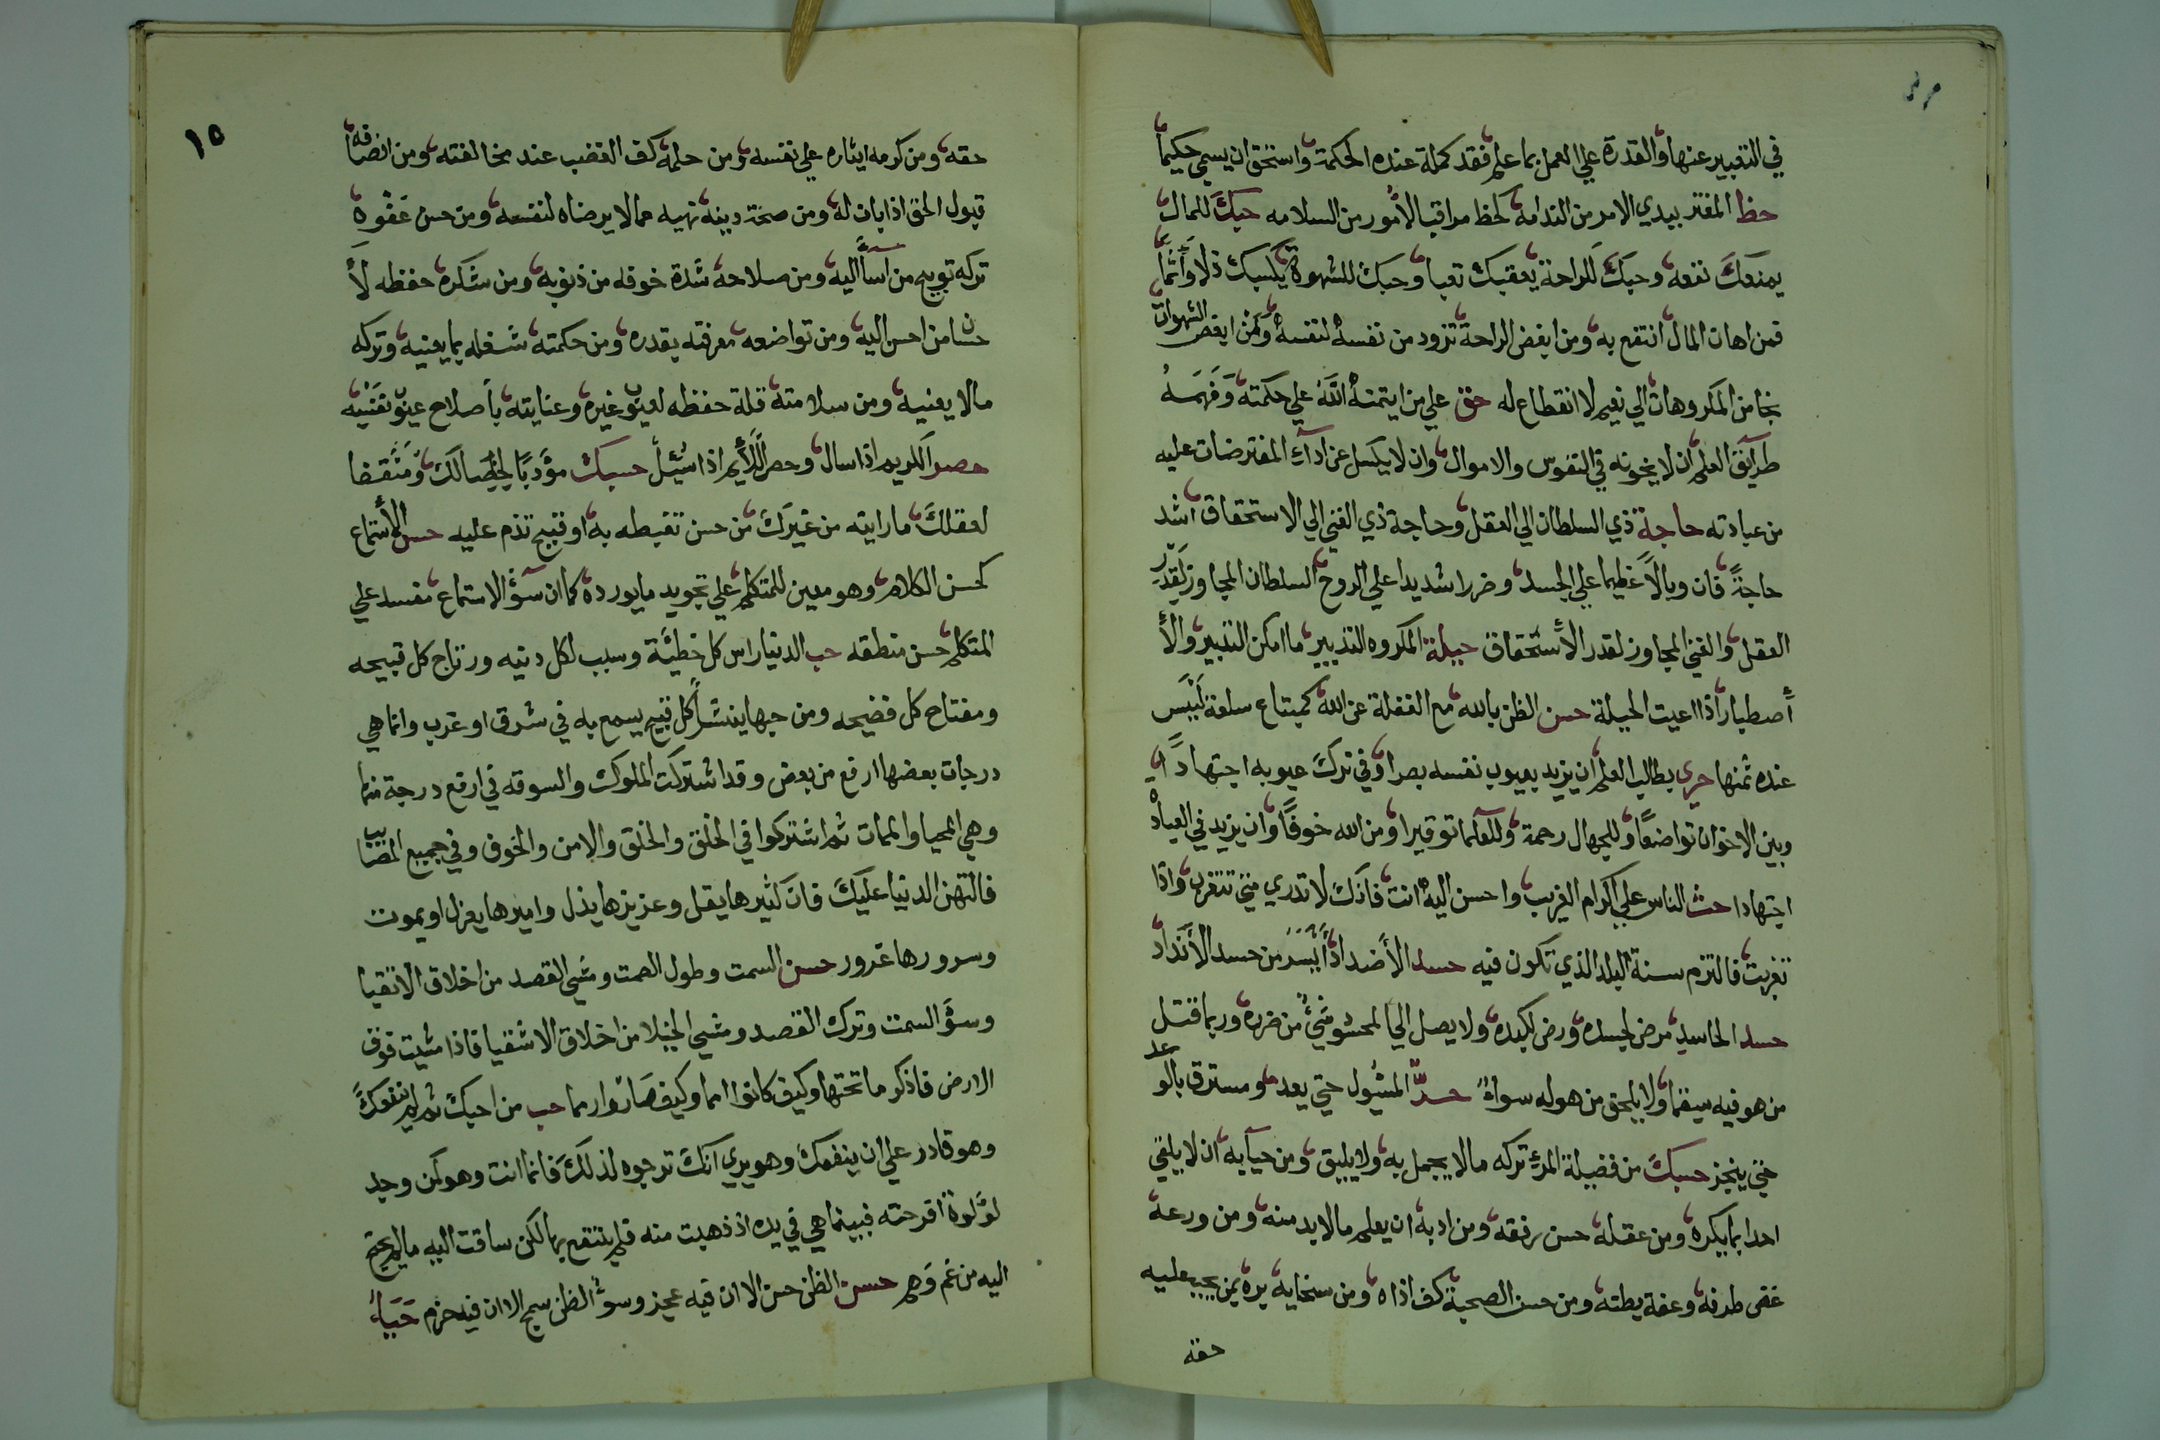 في التعبير عنها والقدرة علي العمل بما علم فقد كملة عنده الحكمة واستحق ان يسمي حكيما
حظ المغتر ببدي الامر من الندامة كحظ مراقب الأمور من السلامه حبكَ للمال
يمنعكَ نفعه وحبكَ للراحة يعقبك تعبا وحبكَ للشهوة يكسبك ذلا وأثما
فمن اهان المال انتفع به ومن ابغض الراحة تزود من نفسه لنفسه ومن ابغض الشهوات
نجا من المكروهات الي نعيم لا انقطاع له حق علي من ايتمنه الله علي حكمته وفهمه
طرايق العلم ان لا يخونه في النفوس والاموال وان لا يكسل عن اداء المفترضات عليه
من عبادته حاجة ذي السلطان الي العقل وحاجة ذي الغني الي الاستحقاق اشد
حاجةً فان وبالاً عظيما علي الجسد وضررا شديدا علي الروح السلطان المجاوز لقدر
العقل والغني المجاوز لقدر الأستحقاق حيلة المكروه التدبير ما امكن التدبير والأ
أصطبارا اذا اعيت الحيلة حسن الظن بالله مع الغفلة عن الله كمبتاع سلعة ليس
عنده ثمنها حري بطالب العلم ان يزيد بعيوب نفسه بصرا وفي ترك عيوبه اجتهاداً
وبين الاخوان تواضعًا وللجهال رحمة وللعلما توقيرا ومن الله خوفًا وان يزيد في العبادة
اجتهادا حث الناس علي اكرام الغريب واحسن اليه انت فانك لا تدري متي تتغرب واذا
تغربت فالتزم سنة البلد الذي تكون فيه حسد الأضداد أيسر من حسد الأنداد
حسد الحاسد مرض لجسده ورض لكبده ولا يصل الي المحسود شيء من ضرره وربما قتل
من هو فيه سقما ولا يلحق من هو له سواء حرٌّ المسُول حتي يعد ومسترق بالوعد
حتي ينجز حسبكَ من فضيلة المرء تركه ما لا يجمل به ولا يليق ومن حيآيه ان لا يلقي
احدا بما يكره ومن عقله حسن رفقه ومن ادبه ان يعلم ما لا بد منه ومن ورعه
غض طرفه وعفة بطنه ومن حسن الصحبة كف اذاه ومن سخايه بره بمن يجب عليه
حقه
١٥
حقه ومن كرمه ايثاره علي نفسه ومن حلمه كف الغضب عند مخالفته ومن انصافه
قبول الحق اذا بان له ومن صحة دينه نهيه عما لا يرضاه لنفسه ومن حسن عَفْوه
تركه توبيخ من اسأ اليه ومن صلاحه شدة خوفه من ذنوبه ومن شكره حفظه لأ
حسان من احسن اليه ومن تواضعه معرفته بقدره ومن حكمته شغله بما يعنيه وتركه
مالا يعنيه ومن سلامته قلة حفظه لعيوب غيره وعنايته بأصلاح عيوب نفسه
حصر الكريم اذا سال وحصر اللأيم اذا سُئل حسبك مؤدبًا لخصالكَ ومثقفا
لعقلكَ ما رايته من غيركَ من حسن تغبطه به او قبيح تذم عليه حسن الأستماع
كحسن الكلام وهو معين للمتكلم علي تجويد ما يورده كما ان سؤ الاستماع مفسد علي
المتكلم حسن منطقه حب الدنيا راس كل خطيئة وسبب لكل دنيه ورتاج كل قبيحه
ومفتاح كل فضيحه ومن حبها ينشأ كل قبيح يسمع به في شرق او غرب وانما هي
درجات بعضها ارفع من بعض وقد اشتركت الملوك والسوقه في ارفع درجة منها
وهي المحيا والممات ثم اشتركوا في الخلق والخلق والامن والخوف وفي جميع المصايب
فالتهن الدنيا عليكَ فان كثيرها يقل وعزيزها يذل واميرها يعزل او يموت
وسرورها غرور حسن السمت وطول الصمت ومشي القصد من اخلاق الاتقيا
وسؤ السمت وترك القصد ومشي الخيلا من اخلاق الاشقيا فاذا مشيت فوق
الارض فاذكر ما تحتها وكيف كانوا امما وكيف صاروا رمما حب من احبك ثم لم ينفعكَ
وهو قادر علي ان ينفعك وهو يري انكَ ترجوه لذلكَ فانما انت وهو كمن وجد
لؤلوة افرحته فبينما هي في يده اذ ذهبت منه فلم ينتفع بها لكن ساقت اليه ما لم يحتج
اليه من غم وهم حسن الظن حسن الا ان فيه عجز وسؤ الظن سمج الا ان فيه حزم حياء